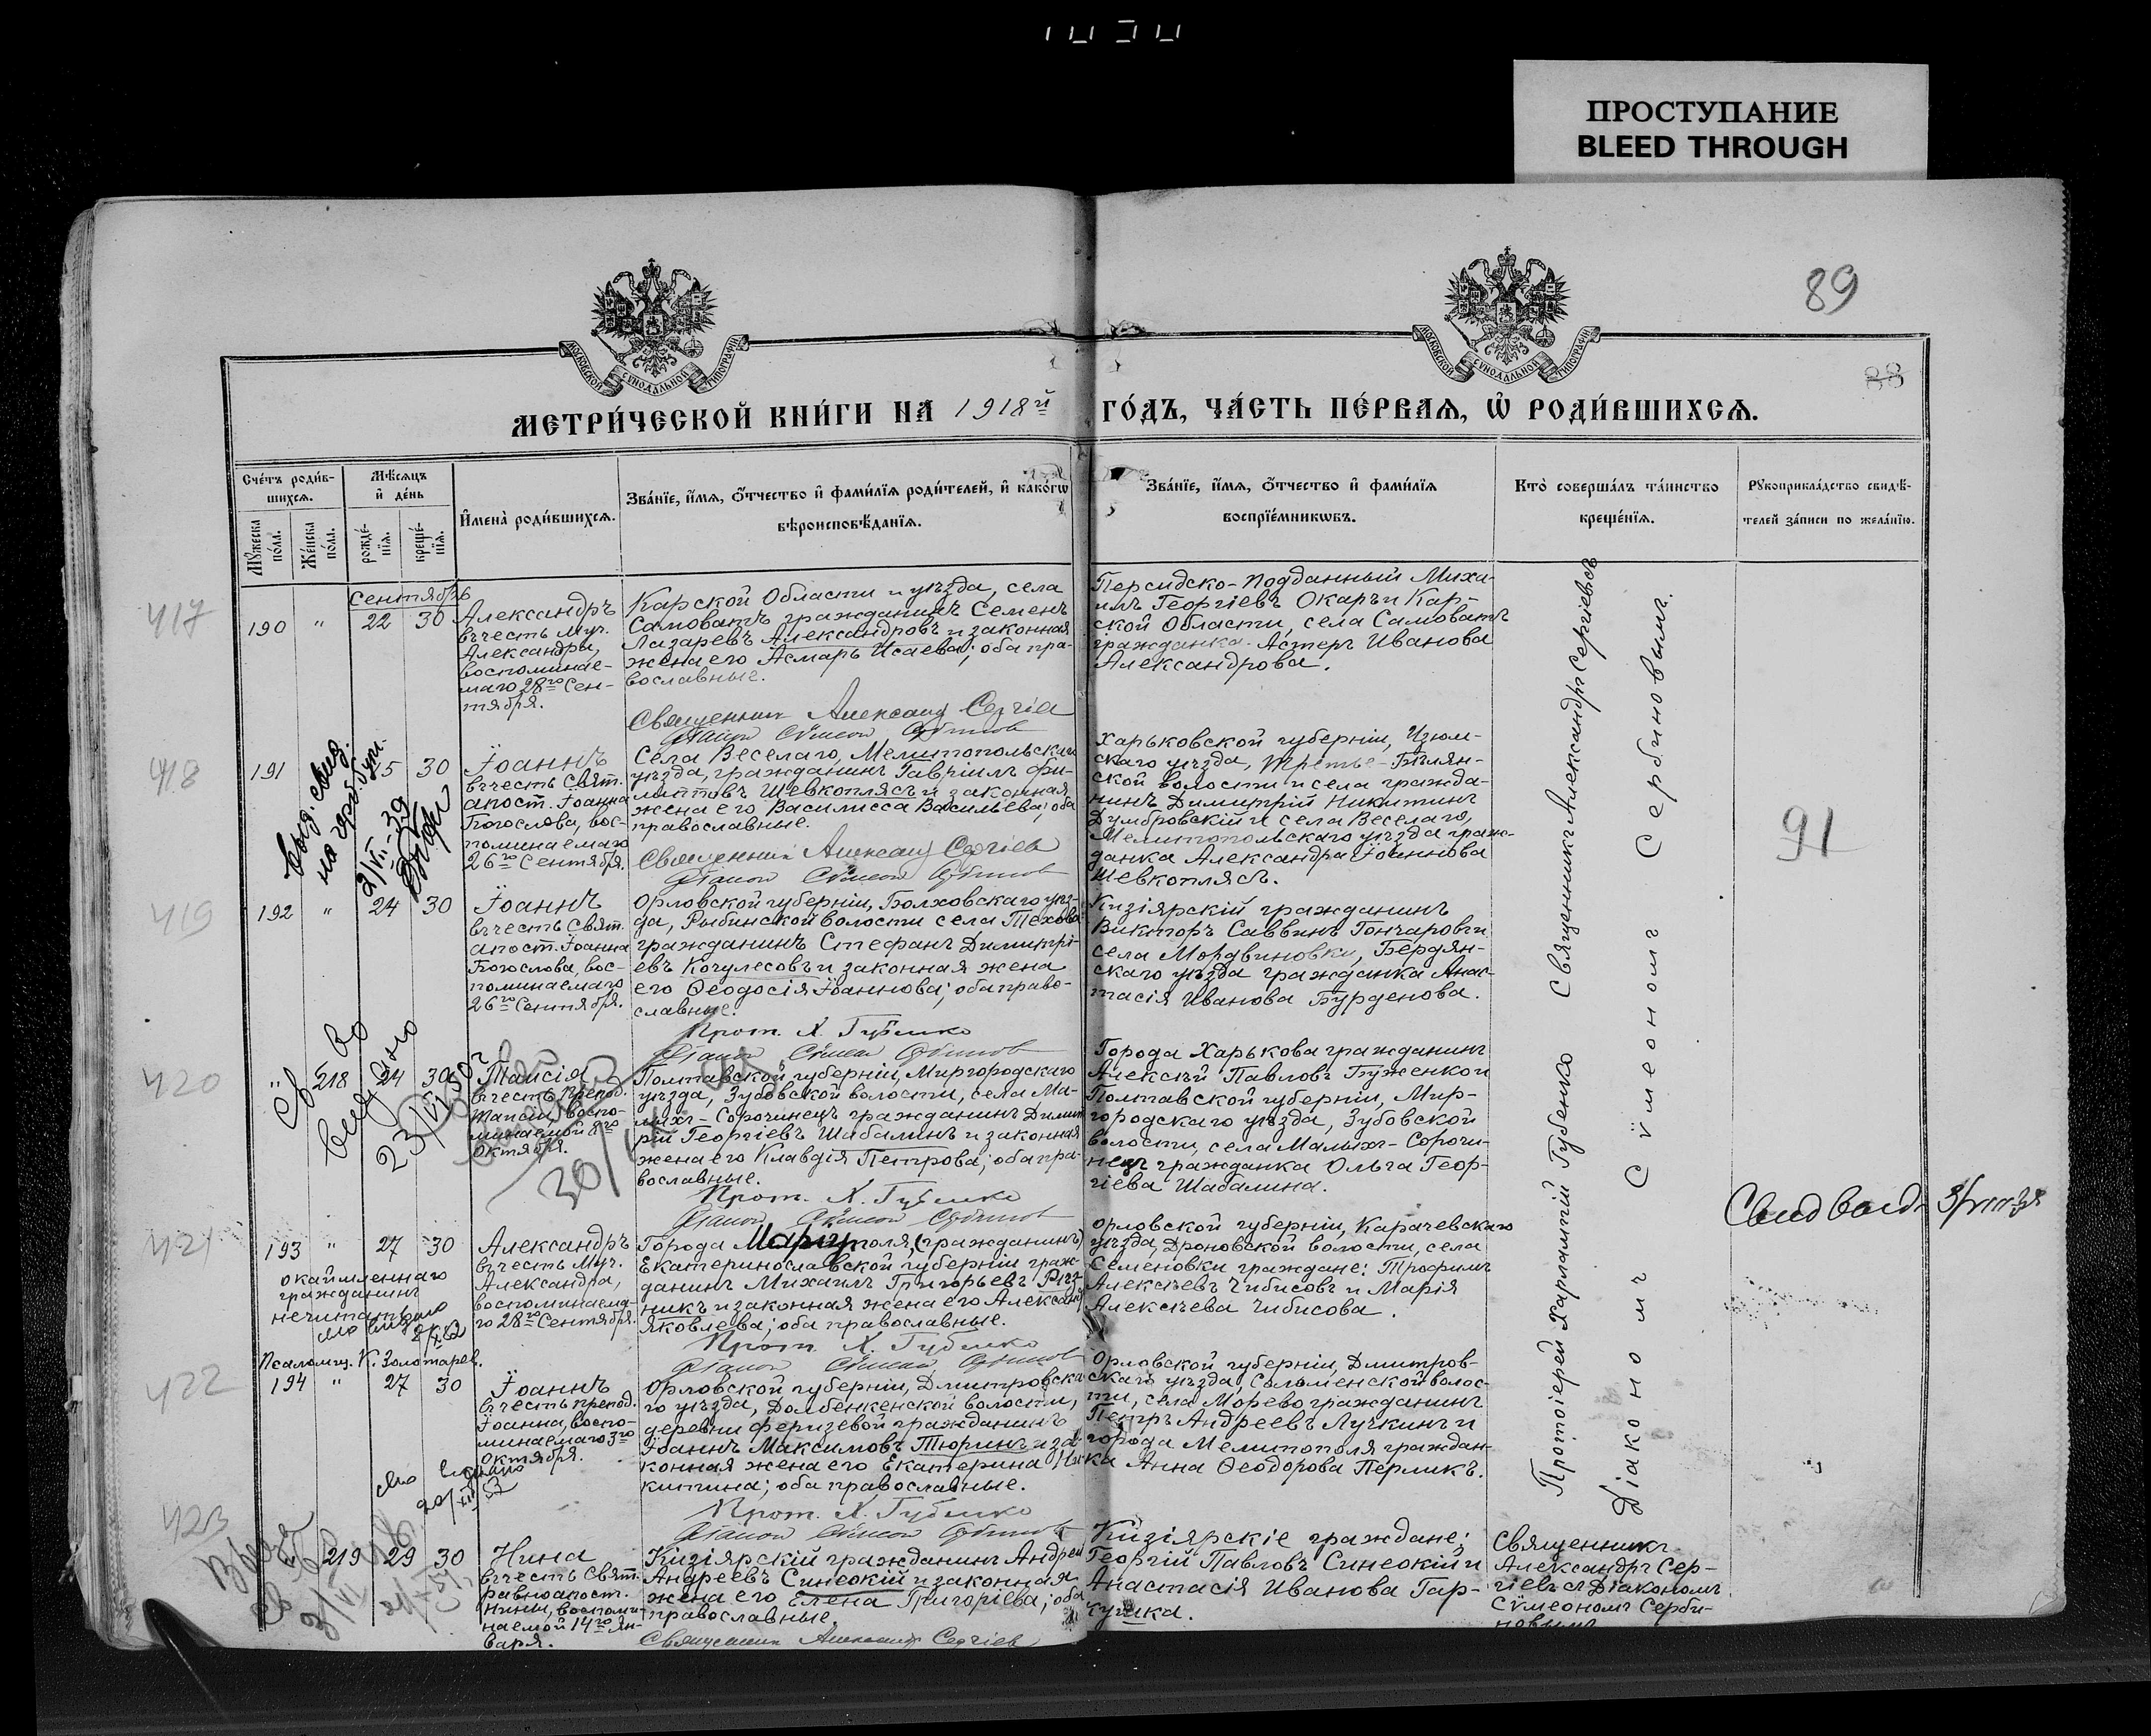 ПРОСТУПАНИЕ
BLEED THROUGH
89
88
МОСКОВСКОЙ СѴНОДАЛЬНОЙ ТИПОГРАФІИ
МОСКОВСКОЙ СѴНОДАЛЬНОЙ ТИПОГРАФІИ
МЕТРИ́ЧЕСКОЙ КНИ́ГИ НА 1918й ГО́ДЪ, ЧА́СТЬ ПЕ́РВАЯ, Ѿ РОДИ́ВШИХСЯ.
Сче́тъ роди́в-
шихся.
Мѣ́сяцъ
и҆ де́нь
Мꙋ́жеска
по́ла.
Же́нска
по́ла.
рожде́-
нїя.
креще́-
нїя.
И҆мена̀ роди́вшихся.
Зва́нїе, и҆́мя, о҆́тчество и҆ фами́лїя роди́телей, и҆ како́гѡ
вѣроисповѣ́данїя.
Зва́нїе, и҆́мя, о҆́тчество и҆ фами́лїя
воспрїе́мникѡвъ.
Кто̀ соверша́лъ та́инство
креще́нїя.
Рꙋкоприкла́дство свидѣ́-
телей за́писи по жела́нїю.
Сентябрь
417
190 " 22 30
Александръ
въ честь Муч.
Александра,
воспоминае-
маго 28го Сен-
тября.
Карской Области и уѣзда, села
Самоватъ гражданинъ Семенъ
Лазаревъ Александровъ и законная
жена его Асмаръ Исаева; оба пра-
вославные.
Священник Александр Сергіев
Діакон Сѵмеон Сербинов
Персидско-подданный Миха-
илъ Георгіевъ Окаръ и Кар-
ской Области, села Самоватъ
гражданка Астеръ Иванова
Александрова.
418
191 15 30
Іоаннъ
въ честь Свят.
апост. Іоанна
Богослова, вос-
поминаемаго
26го Сентября.
Села Веселаго, Мелитопольскаго
уѣзда, гражданинъ Гавріилъ Фи-
липповъ Шевкоплясъ и законная
жена его Василисса Васильева; оба
православные.
Священник Александр Сергіев
Діакон Сѵмеон Сербинов
Харьковской губерніи, Изюм-
скаго уѣзда, Третье-Бѣлян-
ской волости и села гражда-
нинъ Димитрій Никитинъ
Думбровскій и села Веселаго,
Мелитопольскаго уѣзда граж-
данка Александра Іоаннова
Шевкоплясъ.
91
419
192 " 24 30
Іоаннъ
въ честь Свят.
апост. Іоанна
Богослова, вос-
поминаемаго
26го Сентября.
Орловской губерніи, Болховскаго уѣз-
да, Рыбинской волости села Техова
гражданинъ Стефанъ Димитрі-
евъ Кочулесовъ и законная жена
его Ѳеодосія Іоаннова; оба право-
славные.
Прот. Х. Губенко
Діакон Сѵмеон Сербинов
Кизіярскій гражданинъ
Викторъ Саввинъ Гончаровъ и
села Мордвиновки, Бердян-
скаго уѣзда гражданка Анас-
тасія Иванова Бурденова.
420
" 218 24 30
Таисія
въ честь препод.
Таисіи, воспо-
минаемой 8го
Октября.
Полтавской губерніи, Миргородскаго
уѣзда, Зубовской волости, села Ма-
лыхъ-Сорочинецъ гражданинъ Димит-
рій Георгіевъ Шабалинъ и законная
жена его Клавдія Петрова; оба пра-
вославные.
Прот. Х. Губенко
Діакон Сѵмеон Сербинов
Города Харькова гражданинъ
Алексѣй Павловъ Буженко и
Полтавской губерніи, Мир-
городскаго уѣзда, Зубовской
волости, села Малыхъ-Сорочи-
нецъ гражданка Ольга Геор-
гіева Шабалина.
421
193 " 27 30
окаймленнаго
гражданинъ
не читать
Псаломщ. К. Золотарев.
Александръ
въ честь Муч.
Александра,
воспоминаема-
го 28го Сентября.
Города Мариуполя, (гражданинъ)
Екатеринославской губерніи граж-
данинъ Михаилъ Григорьевъ Рѣз-
никъ и законная жена его Александра
Яковлева; оба православные.
Прот. Х. Губенко
Діакон Сѵмеон Сербинов
Орловской губерніи, Карачевскаго
уѣзда, Дроновской волости, села
Семеновки граждане: Трофимъ
Алексѣевъ Чибисовъ и Марія
Алексѣева Чибисова.
422
194 " 27 30
Іоаннъ
въ честь препод.
Іоанна, воспо-
минаемаго 3го
Октября.
Орловской губерніи, Дмитровска-
го уѣзда, Домбенкенской волости,
деревни Феризевой гражданинъ
Іоаннъ Максимовъ Тюринъ и за-
конная жена его Екатерина Ни-
китина; оба православные.
Прот. Х. Губенко
Діакон Сѵмеон Сербинов
Орловской губерніи, Дмитров-
скаго уѣзда, волос-
ти, села Морево гражданинъ
Петръ Андреевъ Лучкинъ и
города Мелитополя граждан-
ка Анна Ѳеодорова Перликъ.
423
219 29 30
Нина
въ честь Свят.
равноапост.
Нины, воспоми-
наемой 14го Ян-
варя.
Кизіярскій гражданинъ Андрей
Андреевъ Синеокій и законная
жена его Елена Григоріева; оба
православные.
Священник Александр Сергіев
Кизіярскіе граждане;
Георгій Павловъ Синеокій и
Анастасія Иванова Гар-
кушка.
Священникъ
Александръ Сер-
гіевъ съ Діакономъ
Сѵмеономъ Серби-
новымъ
Протоіерей Харлампій Губенко Священникъ Александръ Сергіевъ съ
Діакономъ Сѵмеономъ Сербиновымъ.